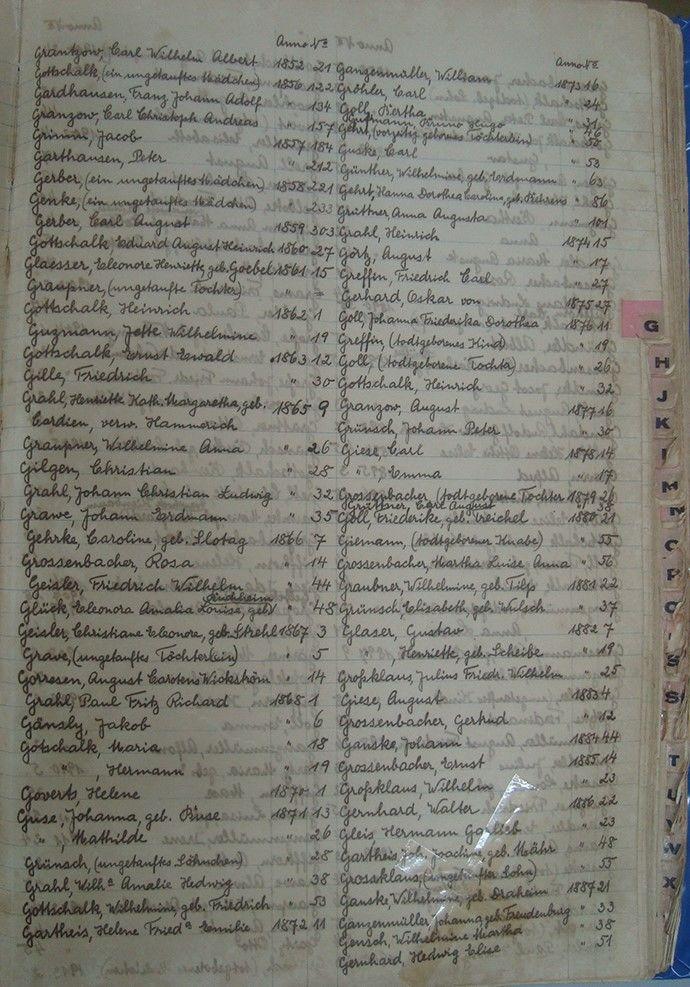 Anno No
Grantzow, Carl Wilhelm Albert 1852 21
Gottschalk, (ein ungetauftes Mädchen) 1856 122
Gardhausen, Franz Johann Adolf " 134
Granzow, Carl Christoph Andreas " 157
Grimm, Jacob 1857 184
Garthausen, Peter " 212
Gerber, (ein ungetauftes Mädchen) 1858 221
Genke, (ein ungetauftes Mädchen) " 233
Gerber, Carl August 1859 303
Gottschalk, Eduard August Heinrich 1860 27
Glaesser, Eleonore Henriette, geb. Goebel 1861 15
Graupner, (ungetaufte Tochter) "
Gottschalk, Heinrich 1862 1
Gugmann, Jette Wilhelmine " 19
Gottschalk, Ernst Ewald 1863 12
Gille, Friedrich " 30
Grahl, Henriette Kath. Margaretha, geb. 1865 9
Cordien, verw. Hammerich
Graupner, Wilhelmine Anna " 26
Gilgen, Christian " 28
Grahl, Johann Christian Ludwig " 32
Grawe, Johann Erdmann " 35
Gehrke, Caroline, geb. Slotag 1866 7
Grossenbacher, Rosa " 14
Geisler, Friedrich Wilhelm " 44
Glück, Eleonora Amalia Louise, geb. " 48
Geisler, Christiane Eleonore, geb. Strehl 1867 3
Grave, (ungetauftes Töchterlein) " 5
Gorresen, August Carstens Wickström " 14
Grahl, Paul Fritz Richard 1868 1
Gänsly, Jakob " 6
Gotschalk, Maria " 18
" , Hermann " 19
Goverts, Helene 1870 1
Guse, Johanna, geb. Buse 1871 13
" Mathilde " 26
Grünsch, (ungetauftes Söhnchen) " 28
Grahl, Wilha Amalie Hedwig " 38
Gottschalk, Wilhelmine, geb. Friedrich " 53
Gartheis, Helene Frieda Emilie 1872 11
Anno No
Ganzenmüller, William 1873 16
Gröhler, Carl " 24
Göll, Bertha " 31
Bruno Hugo " 46
Gehrt, (vorzeitig gebornes Töchterlein) " 50
Guske, Carl " 53
Günther, Wilhelmine, geb. Erdmann " 63
Gehrt, Hanna Dorothea Carolina, geb. Behrens " 86
Grüttner, Anna Augusta " 101
Grahl, Heinrich 1874 15
Görtz, August " 17
Greffin, Friedrich Carl " 27
Gerhard, Oskar von 1875 27
Göll, Johanna Friederika Dorothea 1876 11
Greffin, (todtgebornes Kind) " 19
Göll, (todtgeborene Tochter) " 26
Gottschalk, Heinrich " 32
Granzow, August 1877 16
Grünsch, Johann Peter " 30
Giese, Carl 1878 14
" Emma " 17
Grossenbacher, (todtgeborene Tochter 1879 26
Grüttner, Carl August " 38
Göll, Friederike, geb. Treichel 1880 21
Giemann, (todtgeborener Knabe) " 55
Grossenbacher, Martha Luise Anna " 56
Graubner, Wilhelmine, geb. Tilp 1881 22
Grünsch, Elisabeth, geb. Welsch " 37
Glaser, Gustav 1882 7
" Henriette, geb. Scheibe " 19
Großklaus, Julius Friedr. Wilhelm " 25
Giese, August 1883 4
Grossenbacher, Gertrud " 12
Ganske, Johann 1884 44
Grossenbacher, Ernst 1885 14
Großklaus, Wilhelm " 23
Gernhard, Walter 1886 22
Gleis, Hermann Gottlieb " 23
Gartheis, Joh. Joachim, geb. Mähr " 48
Grossklaus, (ungetaufter Sohn) " 55
Ganske, Wilhelmine, geb. Draheim 1887 21
Ganzenmüller, Johanna, geb. Freudenburg " 33
Gensch, Wilhelmine Martha " 38
Gernhard, Hedwig Elise " 51
G
H
J
K
M
N
O
P
S
S
T
U
V
W
X